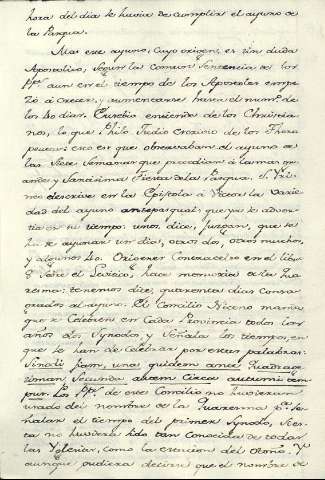 hora del dia se havia de cumplir el ayuno de
la Pasqua.
Mas este ayuno, cuyo origen, es sin duda
Apostolico, segun la comun sentencia de los
PP.ˢ aun en el tiempo de los Apostoles empe
zó á crecer, y aumentarse hasta el num.º de
los 40 dias. Eusebio entiende de los Christia
nos, lo que Philo Judio escrivio de los Thera
peutas: esto es que observaban el ayuno de
las siete semanas que precedian á la mas gr
ande, y Santisima Fiesta de la Pasqua. S. Yri
neo descrive en la Epistola á Victor la varie
dad del ayuno antepasqual que ya se adver
tia en su tiempo: unos, dice, juzgan, que se
ha de ayunar un dia, otros dos, otros muchos,
y algunos 40. Origenes Contra Celso en el lib.
8 sobre el Levitico, hace memoria de la Qua
resma: tenemos dice, quarenta dias consa
grados al ayuno. El Concilio Niceno manda
que se celebren en Cada Provincia todos los
años dos Synodos, y señala los tiempos, en
que se han de celebrar por estas palabras:
Sinodi fiant, una quidem ante Quadrage
simam Secunda autem Circa autumni tem
pus. Los PP.ˢ de este Concilio no huvieran
usado del nombre de la Quaresma p.ª se
ñalar el tiempo del primer Synodo, si es
ta no huviera sido tan conocida de todas
las Yglesias, como la estacion del Otoño. Y
aunque pudiera decirse que el nombre de